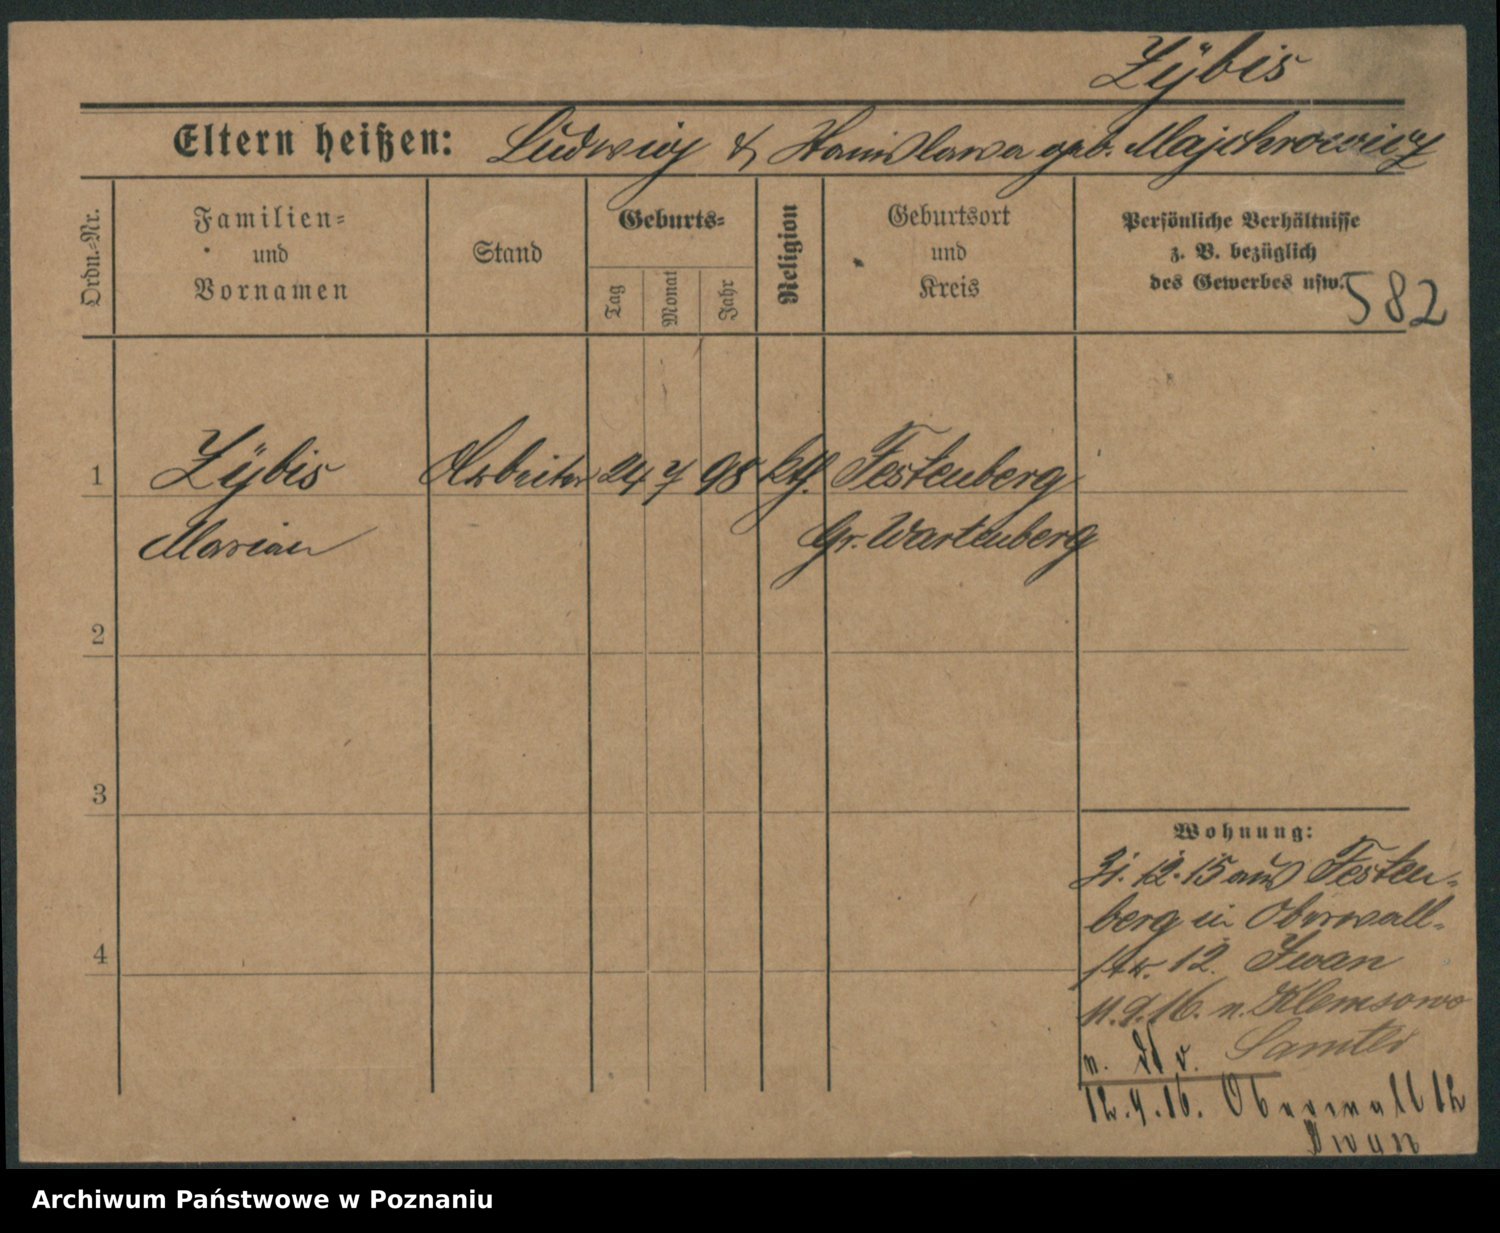 Zÿbis
Eltern heißen: Ludwig & Stanislawa geb. Majchrowicz
Ordn.-Nr.
Familien-
und
Vornamen
Stand
Geburts-
Tag
Monat
Jahr
Religion
Geburtsort
und
Kreis
Persönliche Verhältnisse
z. B. bezüglich
des Gewerbes usw.
582
1 Zÿbis Arbeiter 24 7 98 kth. Festenberg
Marian Gr. Wartenberg
2
3
4
Wohnung:
31.12.15 aus Festen-
berg in Oberwall-
str. 12. Iwan
11.9.16. n. Klemsowo
Samter
n. v.
12.9.16. Oberwall 12
Iwan